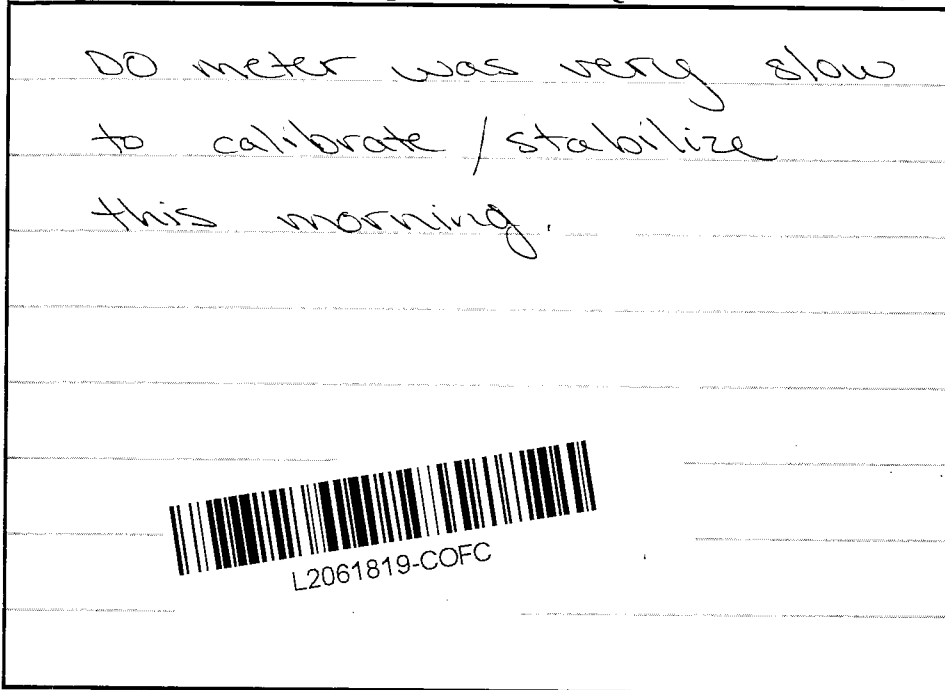 DO meter was very slow
to calibrate / stabilize
this morning.
L2061819-COFC